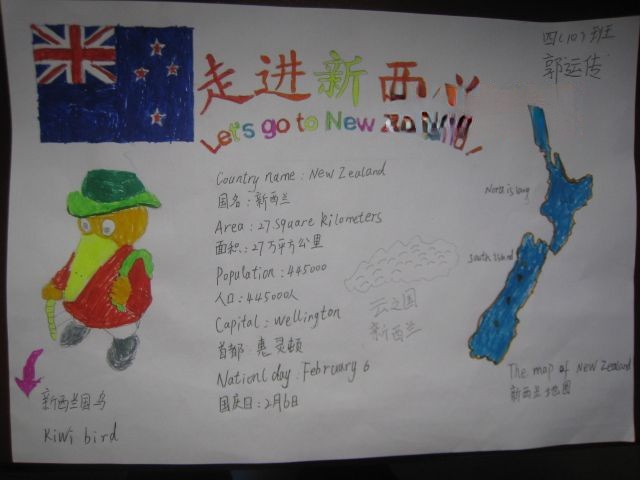 四(10)班
郭运传
走进新西
Let's go to New
Country name: New Zealand
国名:新西兰
Area: 27 Square Kilometers
面积:27万平方公里
Population: 445000
人口:445000人
Capital: Wellington
首都 惠灵顿
Nationl day: February 6
国庆日:2月6日
云之国
新西兰
North island
South island
The map of New Zealand
新西兰地图
新西兰国鸟
Kiwi bird